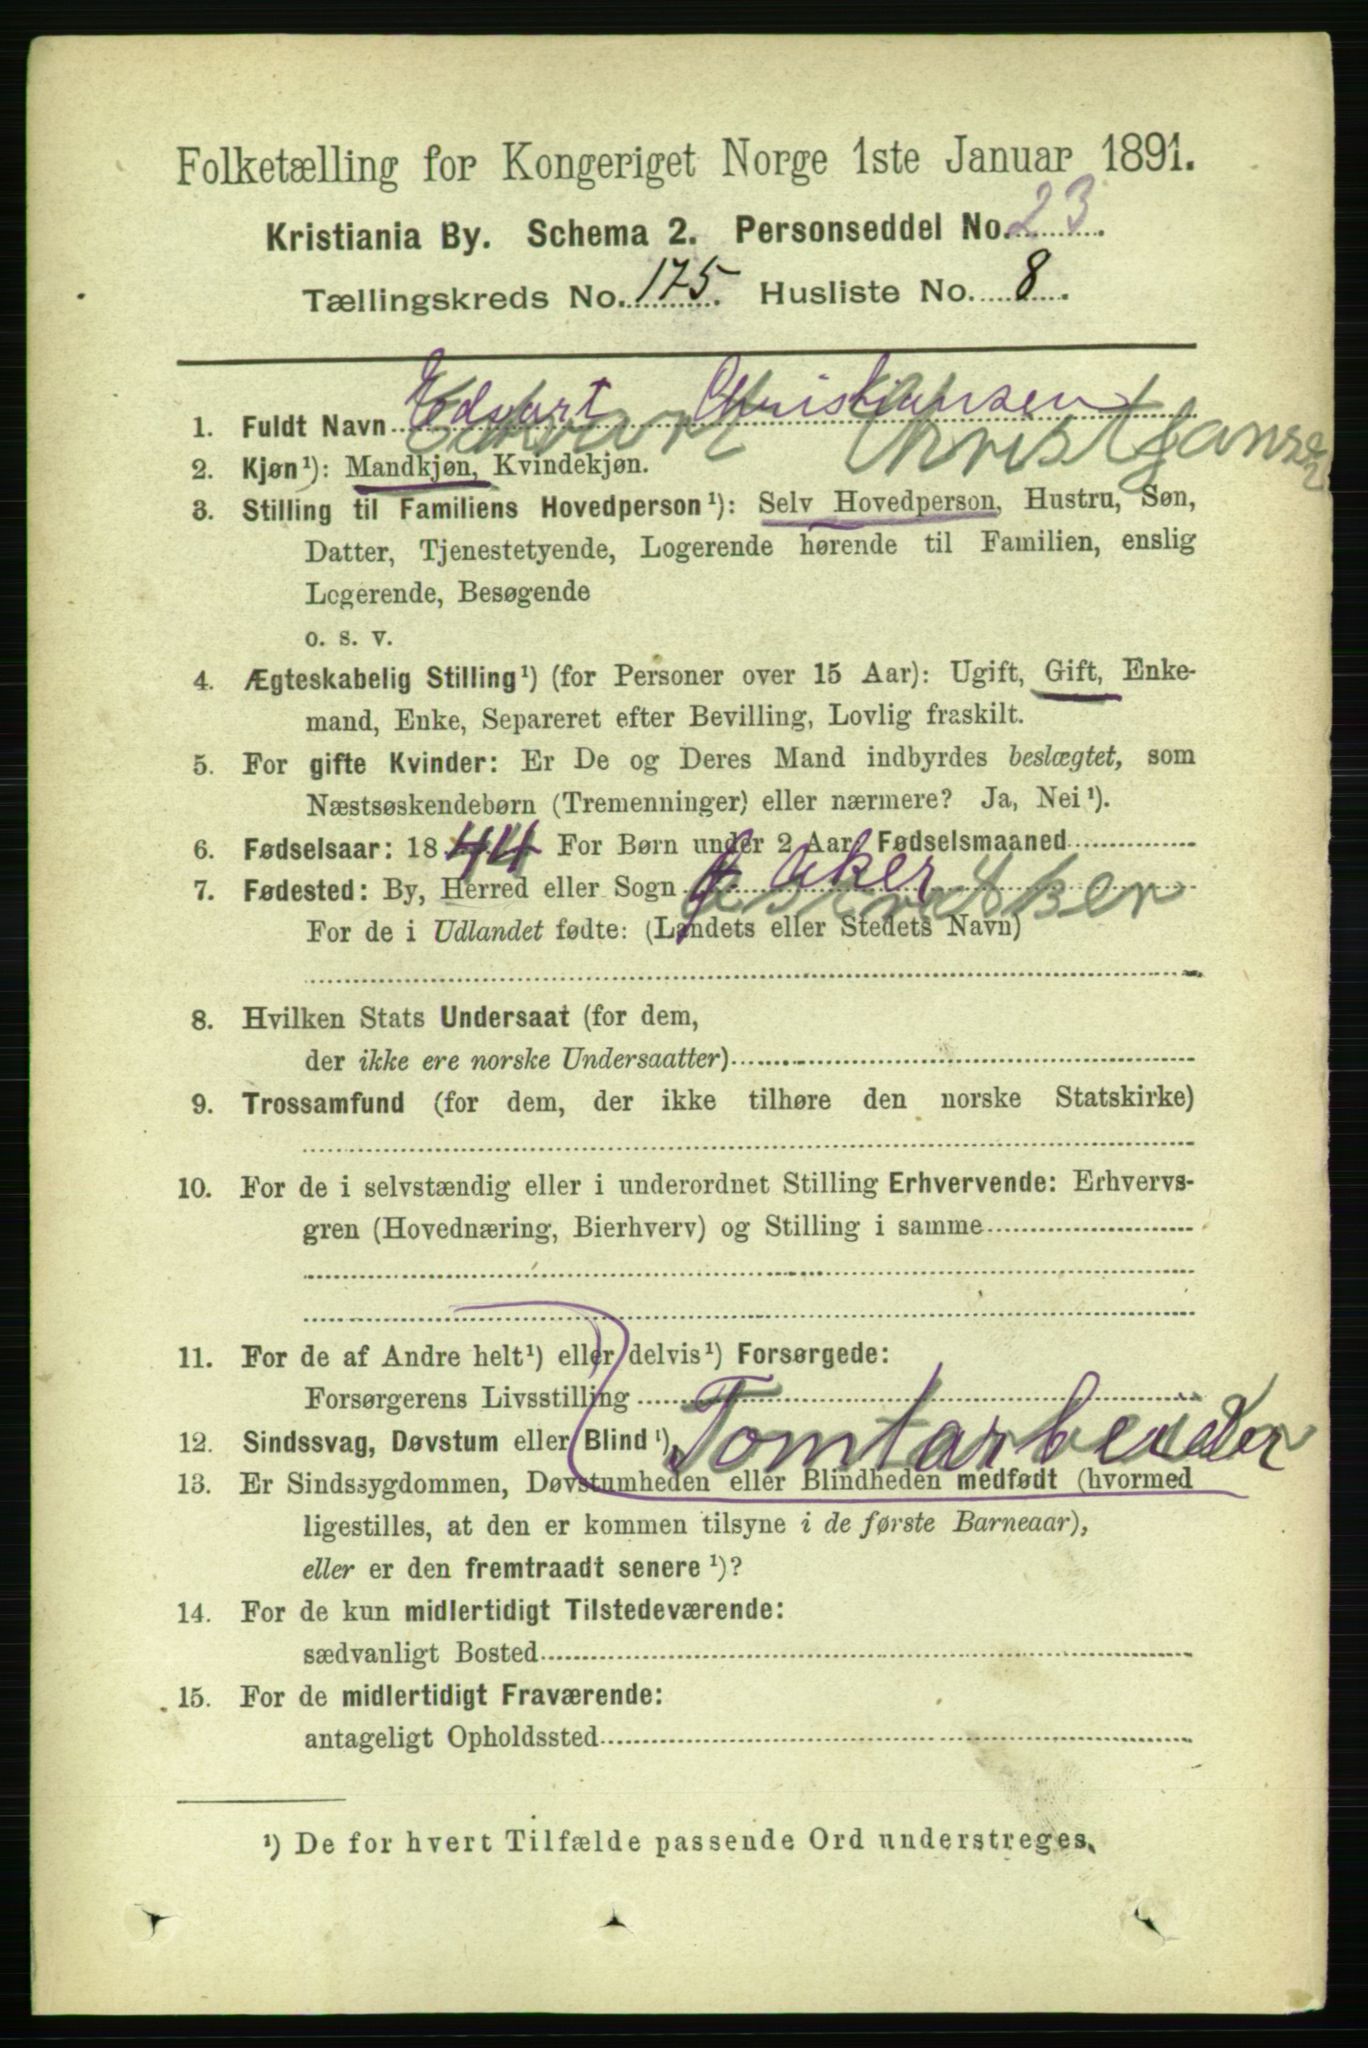 Folketælling for Kongeriget Norge 1ste Januar 1891.
Kristiania By. Schema 2. Personseddel No. 23.
Tællingskreds No. 175. Husliste No. 8.
1. Fuldt Navn Edvart Christiansen
Edvart Christjansen
2. Kjøn¹): Mandkjøn, Kvindekjøn.
3. Stilling til Familiens Hovedperson¹): Selv Hovedperson, Hustru, Søn,
Datter, Tjenestetyende, Logerende hørende til Familien, enslig
Logerende, Besøgende
o. s. v.
4. Ægteskabelig Stilling¹) (for Personer over 15 Aar): Ugift, Gift, Enke-
mand, Enke, Separeret efter Bevilling, Lovlig fraskilt.
5. For gifte Kvinder: Er De og Deres Mand indbyrdes beslægtet, som
Næstsøskendebørn (Tremenninger) eller nærmere? Ja, Nei¹).
6. Fødselsaar: 1844 For Børn under 2 Aar, Fødselsmaaned
7. Fødested: By, Herred eller Sogn Aker
Aker
For de i Udlandet fødte: (Landets eller Stedets Navn)
8. Hvilken Stats Undersaat (for dem,
der ikke ere norske Undersaatter)
9. Trossamfund (for dem, der ikke tilhøre den norske Statskirke)
10. For de i selvstændig eller i underordnet Stilling Erhvervende: Erhvervs-
gren (Hovednæring, Bierhverv) og Stilling i samme
11. For de af Andre helt¹) eller delvis¹) Forsørgede:
Forsørgerens Livsstilling
Tomtarbeider
12. Sindssvag, Døvstum eller Blind¹),
13. Er Sindssygdommen, Døvstumheden eller Blindheden medfødt (hvormed
ligestilles, at den er kommen tilsyne i de første Barneaar),
eller er den fremtraadt senere¹)?
14. For de kun midlertidigt Tilstedeværende:
sædvanligt Bosted
15. For de midlertidigt Fraværende:
antageligt Opholdssted
¹) De for hvert Tilfælde passende Ord understreges.